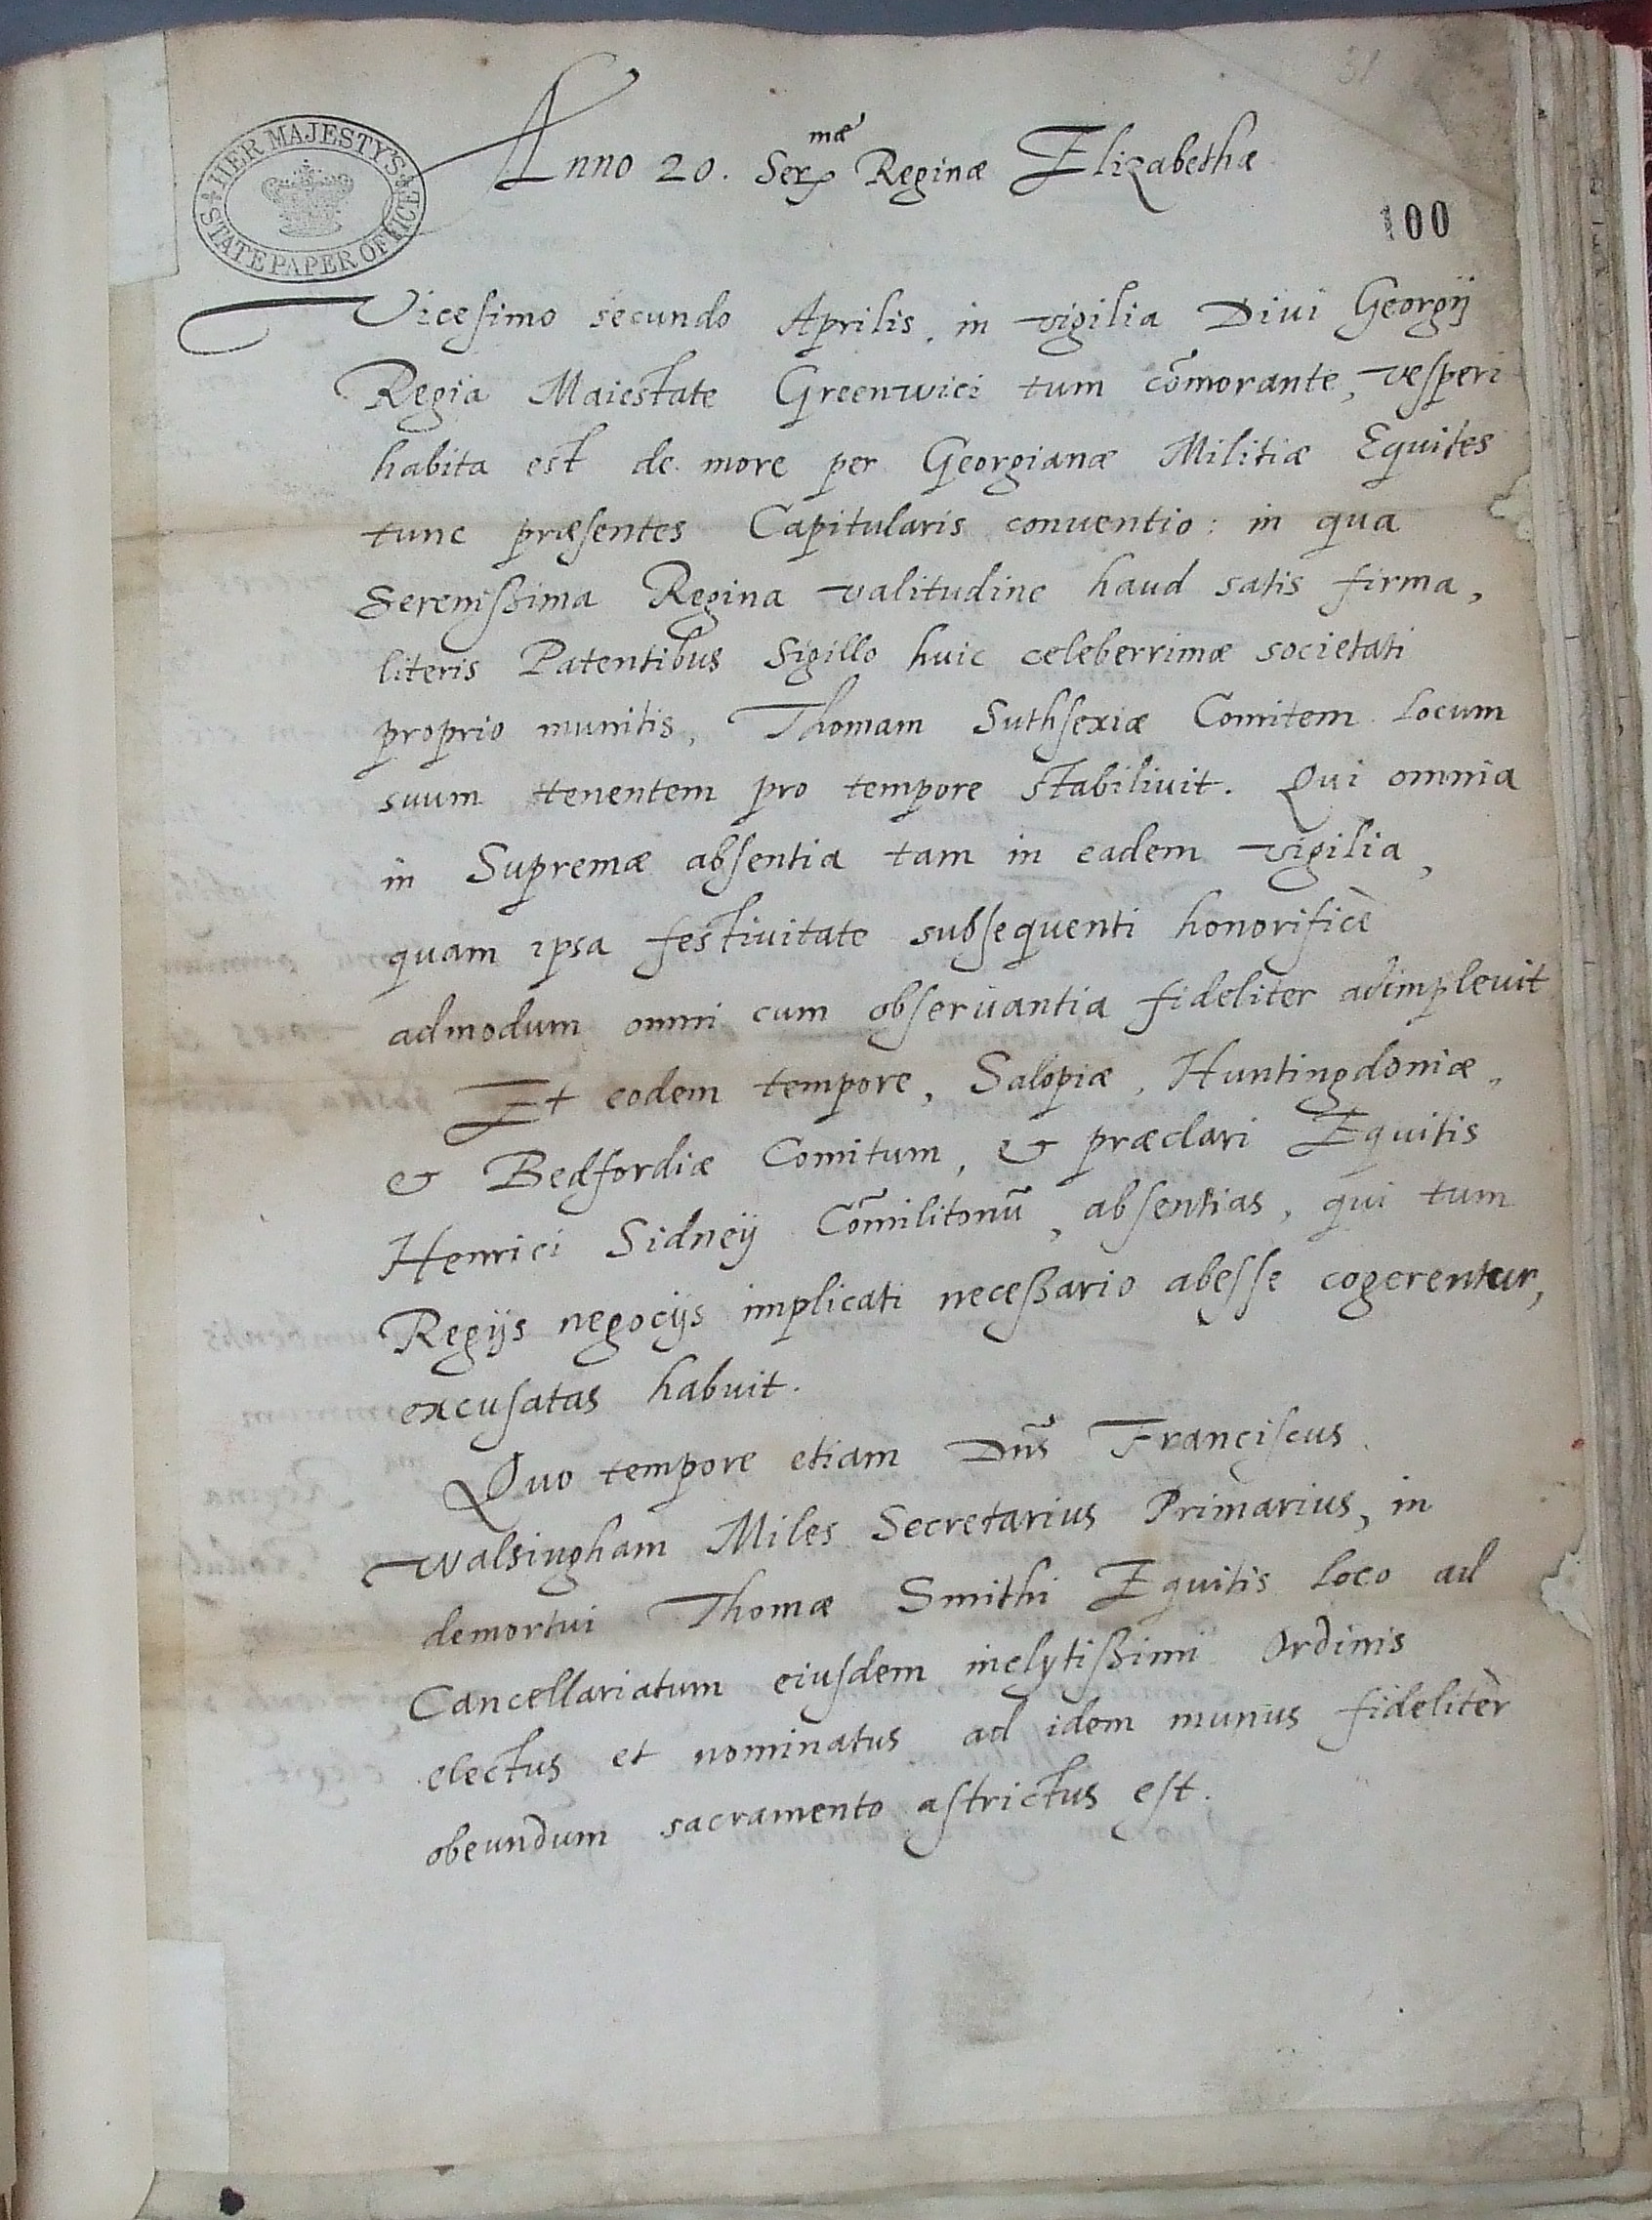 31
HER MAJESTY'S
STATE PAPER OFFICE
Anno 20. Ser.mæ Reginæ Elizabethæ
100
Vicesimo secundo Aprilis, in vigilia Diui Georgij
Regia Maiestate Greenwici tum cōmorante, vesperi
habita est de more per Georgianæ Militiæ Equites
tunc præsentes Capitularis conuentio: in qua
Serenissima Regina valitudine haud satis firma,
literis Patentibus Sigillo huic celeberrimæ societati
proprio munitis, Thomam Suthsexiæ Comitem locum
suum tenentem pro tempore stabiliuit. Qui omnia
in Supremæ absentia tam in eadem vigilia,
quam ipsa festiuitate subsequenti honorificè
admodum omni cum obseruantia fideliter adimpleuit
Et eodem tempore, Salopiæ, Huntingdoniæ,
& Bedfordiæ Comitum, & præclari Equitis
Henrici Sidneij Cōmilitonū, absentias, qui tum
Regijs negocijs implicati necessario abesse cogerentur,
excusatas habuit.
Quo tempore etiam Dn̄s Franciscus
Walsingham Miles Secretarius Primarius, in
demortui Thomæ Smithi Equitis loco ad
Cancellariatum eiusdem inclytissimi Ordinis
electus et nominatus ad idem munus fidelitèr
obeundum sacramento astrictus est.